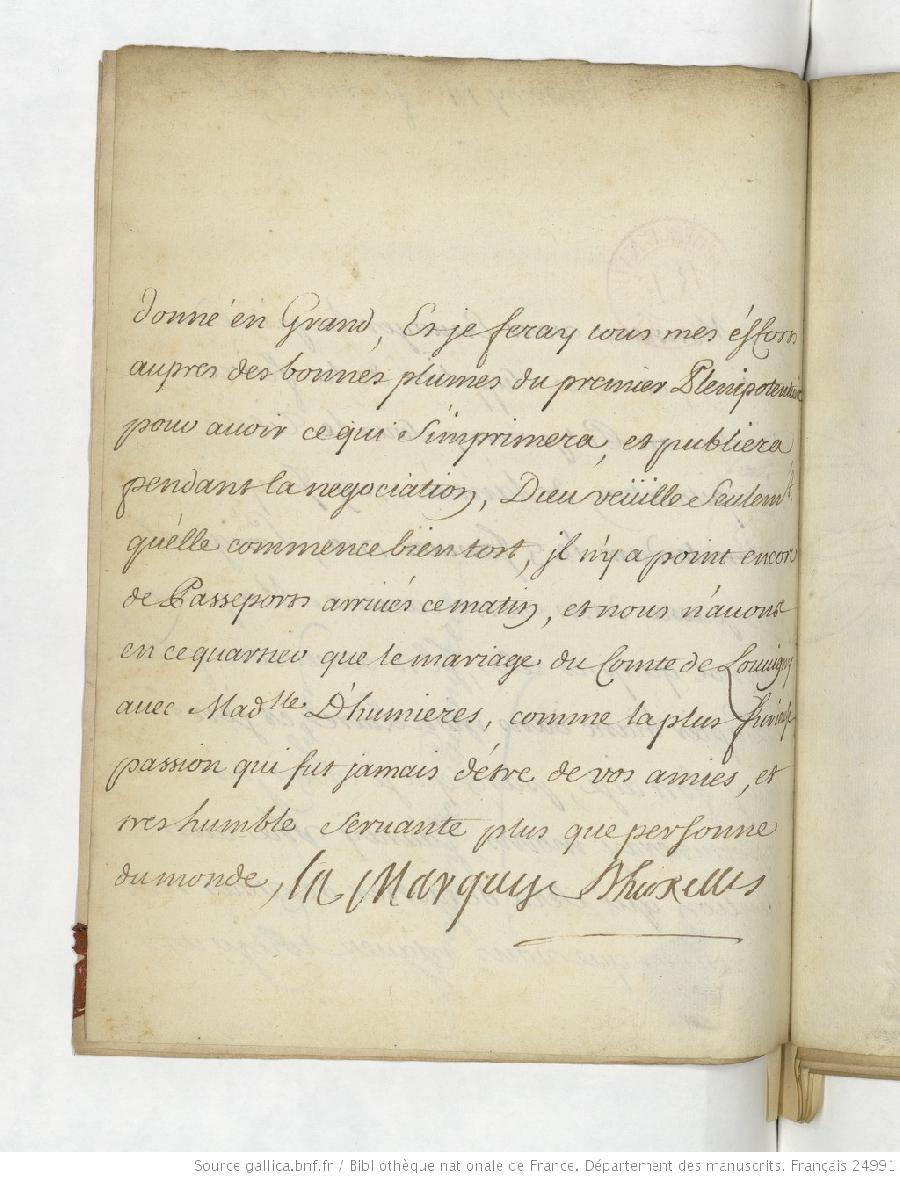 donné en Grand, Et je feray tous mes éfforts
aupres des bonnes plumes du premier Plenipotentiaire
pour auoir ce qui S'imprimera, et publiera
pendant la negociation, Dieu véüille Seulemt
qu'elle commence bien tost, jl n'y a point encors
de Passeports arriués ce matin, et nous n'auons
en ce quartier que le mariage du Comte de Louuigny
avec Madlle D'humieres, comme la plus
passion qui fut jamais d'étre de vos amies, et
tres humble Seruante plus que personne
du monde, la Marquise Dhuxelles
Source gallica.bnf.fr / Bibliothèque nationale de France. Département des manuscrits. Français 24991